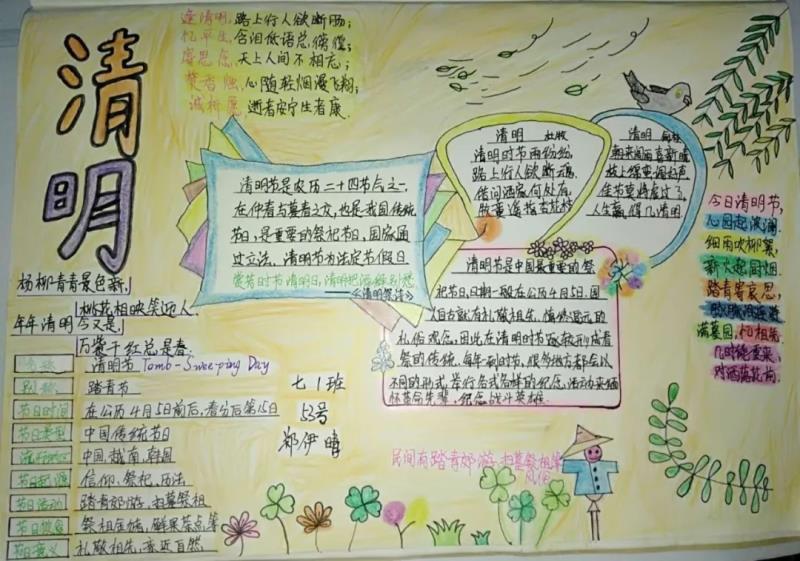 清明
逢清明,路上行人欲断肠;
忆平生,含泪低语总彷徨;
寄思念,天上人间不相忘;
焚香烛,心随轻烟漫飞翔;
诚祈愿,逝者安宁生者康.
杨柳青青景色新,
桃花相映笑迎人
年年清明今又是,
万紫千红总是春.
清明节是农历二十四节气之一,
在仲春与暮春之交,也是我国传统
节日,是重要的祭祀节日,国家通
过立法,清明节为法定节假日
清明 杜牧
清明时节雨纷纷,
路上行人欲断魂,
借问酒家何处有,
牧童遥指杏花村
清明
佳节
人生
清明节是中国最重要的祭
祀节日,日期一般在公历4月5日.因
礼俗观念,因此在清明时节
祭的传统.每年到时节,很多地方都会以
不同的形式,举行各式各样的纪念,活动来缅
怀革命先辈,纪念战斗英雄.
今日清明节,
心园起波澜.
细雨吹柳絮,
新火起厨烟.
踏青寄哀思,
满墓园,忆祖先.
对酒落花前.
清明节 Tomb-Sweeping Day
踏青节
节日时间 在公历4月5日前后,春分后第15日
节日类型 中国传统节日
中国,越南,韩国
节日起源 信仰、祭祀、历法
节日活动 踏青郊游,扫墓祭祖
节日饮食
节日意义 礼敬祖先,亲近自然.
七1班
53号
郑伊晴
民间有踏青郊游、扫墓祭祖等
风俗